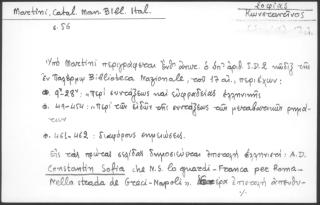 Martini, Catal. Man. Bibl. Ital.
Σοφίας
Κωνσταντῖνος
σ. 56
Ὑπὸ Martini περιγράφεται ὑπ' ἀριθ. I.D.2 κῶδιξ τῆς
ἐν Παλέρμῳ Biblioteca Nazionale, τοῦ 17 αἰ., περιέχων:
φ. 9-28ν: «περὶ συντάξεως καὶ εὐφραδείας ἑλληνικῆς
φ. 49-454: «περὶ τῶν εἰδῶν τῆς συντάξεως τῶν μεταβατικῶν ρημά-
των
φ. 461-462: διαφόρους σημειώσεις.
Εἰς τὰς πρώτας σελίδας δημοσιεύεται ἐπιστολὴ ἑλληνιστί: A.D.
Constantin Sofia che N.S. lo guardi-Franca per Roma-
Nella strada de Greci-Napoli».
ἐπιστολὴ ἀπευθυ-
./.